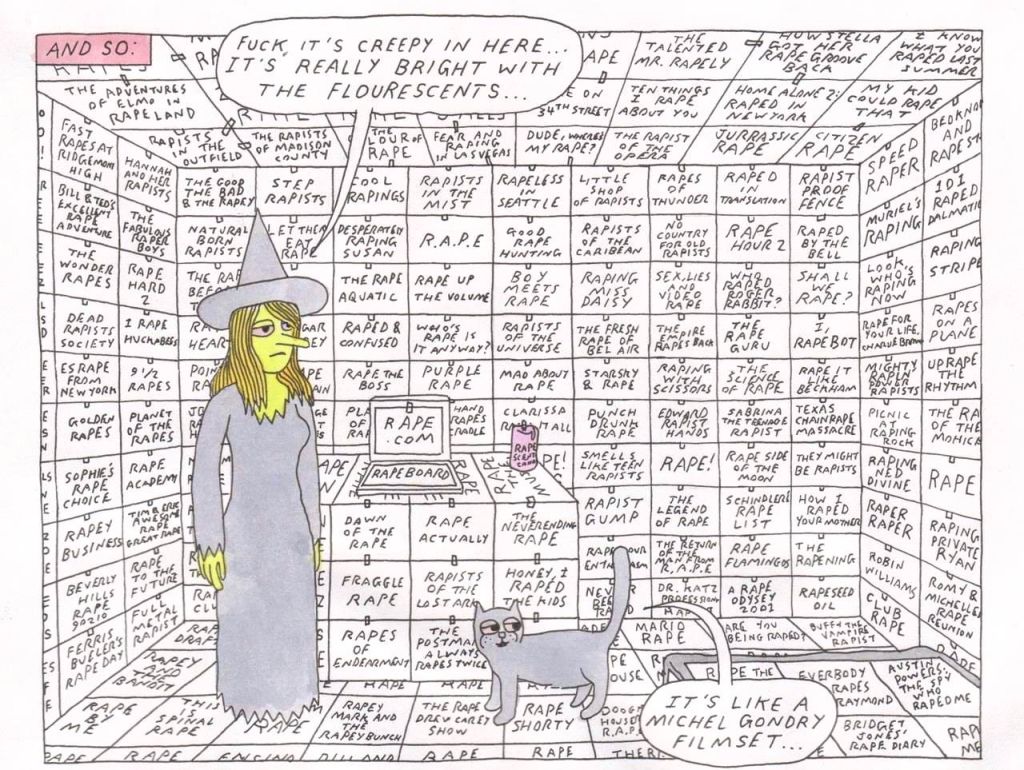 AND SO:
FUCK, IT'S CREEPY IN HERE...
IT'S REALLY BRIGHT WITH
THE FLOURESCENTS...
THE
TALENTED
MR. RAPELY
HOW STELLA
GOT HER
RAPE GROOVE
BACK
I KNOW
WHAT YOU
RAPED LAST
SUMMER
THE ADVENTURES
OF ELMO IN
RAPELAND
34TH STREET
TEN THINGS
I RAPE
ABOUT YOU
HOME ALONE 2:
RAPED IN
NEW YORK
MY KID
COULD RAPE
THAT
RAPISTS
IN THE
OUTFIELD
THE RAPISTS
OF MADISON
COUNTY
RAPE
FEAR AND
RAPING
IN LAS VEGAS
DUDE, WHERE'S
MY RAPE?
THE RAPIST
OF THE
OPERA
JURRASSIC
RAPE
CITIZEN
RAPE
FAST
RAPES AT
RIDGEMONT
HIGH
HANNAH
AND HER
RAPISTS
BILL & TED'S
EXCELLENT
RAPE
ADVENTURE
THE
FABULOUS
RAPER
BOYS
THE
WONDER
RAPES
RAPE
HARD
2
DEAD
RAPISTS
SOCIETY
I RAPE
HUCKABEES
ESRAPE
FROM
NEW YORK
9 1/2
RAPES
GOLDEN
RAPES
PLANET
OF THE
RAPES
SOPHIE'S
RAPE
CHOICE
RAPE
ACADEMY
RAPEY
BUSINESS
TIM & ERIC
AWESOME
RAPE
GREAT RAPE
BEVERLY
HILLS
RAPE
90210
RAPE
TO THE
FUTURE
FERRIS
BUELER'S
RAPE DAY
FULL
METAL
RAPIST
THE GOOD
THE BAD
& THE RAPEY
STEP
RAPISTS
COOL
RAPINGS
RAPISTS
IN THE
MIST
RAPELESS
IN
SEATTLE
LITTLE
SHOP
OF RAPISTS
RAPES
OF
THUNDER
RAPED
IN
TRANSLATION
RAPIST
PROOF
FENCE
NATURAL
BORN
RAPISTS
LET THEM
EAT
RAPE
DESPERATELY
RAPING
SUSAN
R.A.P.E
GOOD
RAPE
HUNTING
RAPISTS
OF THE
CARIBEAN
NO
COUNTRY
FOR OLD
RAPISTS
RAPE
HOUR 2
RAPED
BY THE
BELL
THE RAPE
AQUATIC
RAPE UP
THE VOLUME
BOY
MEETS
RAPE
RAPING
MISS
DAISY
SEX, LIES
AND
VIDEO
RAPE
WHO
RAPED
ROGER
RABBIT?
SHALL
WE
RAPE?
RAPED &
CONFUSED
WHO'S
RAPE IS
IT ANYWAY?
RAPISTS
OF THE
UNIVERSE
THE FRESH
RAPE OF
BEL AIR
THE EMPIRE
RAPES BACK
THE
RAPE
GURU
I,
RAPEBOT
RAPE THE
BOSS
PURPLE
RAPE
MAD ABOUT
RAPE
STARSKY
& RAPE
RAPING
WITH
SCISSORS
THE
SCIENCE
OF RAPE
RAPE IT
LIKE
BECKHAM
HAND
RAPES
CRADLE
CLARISSA
PUNCH
DRUNK
RAPE
EDWARD
RAPIST
HANDS
SABRINA
THE TEENAGE
RAPIST
TEXAS
CHAINRAPE
MASSACRE
SMELLS
LIKE TEEN
RAPISTS
RAPE!
RAPE SIDE
OF THE
MOON
THEY MIGHT
BE RAPISTS
RAPIST
GUMP
THE
LEGEND
OF RAPE
SCHINDLER'S
RAPE
LIST
HOW I
RAPED
YOUR MOTHER
THE RETURN
OF THE
MAN FROM
R.A.P.E
RAPE
FLAMINGOS
THE
RAPENING
DR. KATZ
A RAPE
ODYSEY
2001
RAPESEED
OIL
MARIO
RAPE
ARE YOU
BEING RAPED?
BUFFY THE
VAMPIRE
RAPIST
RAPE
.COM
RAPEBOARD
DAWN
OF THE
RAPE
RAPE
ACTUALLY
THE
NEVERENDING
RAPE
FRAGGLE
RAPE
RAPISTS
OF THE
LOST ARK
HONEY, I
RAPED
THE KIDS
RAPES
OF
ENDEARMENT
THE
POSTMAN
ALWAYS
RAPES TWICE
SPEED
RAPER
BEDKNOBS
AND
RAPESTICKS
MURIEL'S
RAPING
101
RAPED
DALMATIONS
LOOK
WHO'S
RAPING
NOW
RAPING
STRIPES
RAPE FOR
YOUR LIFE,
CHARLIE BROWN
RAPES
ON A
PLANE
MIGHTY
RAPIN
POWER
RAPISTS
UPRAPE
THE
RHYTHM
PICNIC
AT
RAPING
ROCK
THE RA
OF THE
MOHICA
RAPING
NED
DIVINE
RAPE
RAPER
RAPER
RAPING
PRIVATE
RYAN
ROBIN
WILLIAMS
ROMY &
MICHELLE
RAPE
REUNION
CLUB
RAPE
RAPEY
AND THE
BANDIT
RAPE
BY
ME
THIS
IS SPINAL
RAPE
RAPE
RAPEY
MARK AND
THE
RAPEY BUNCH
THE RAPE
DREW CAREY
SHOW
RAPE
SHORTY
RAPE THE
EVERYBODY
RAPES
RAYMOND
AUSTIN
POWERS:
THE SPY
WHO
RAPED ME
BRIDGET
JONES'
RAPE DIARY
RAPE
RAPE
IT'S LIKE A
MICHEL GONDRY
FILMSET...